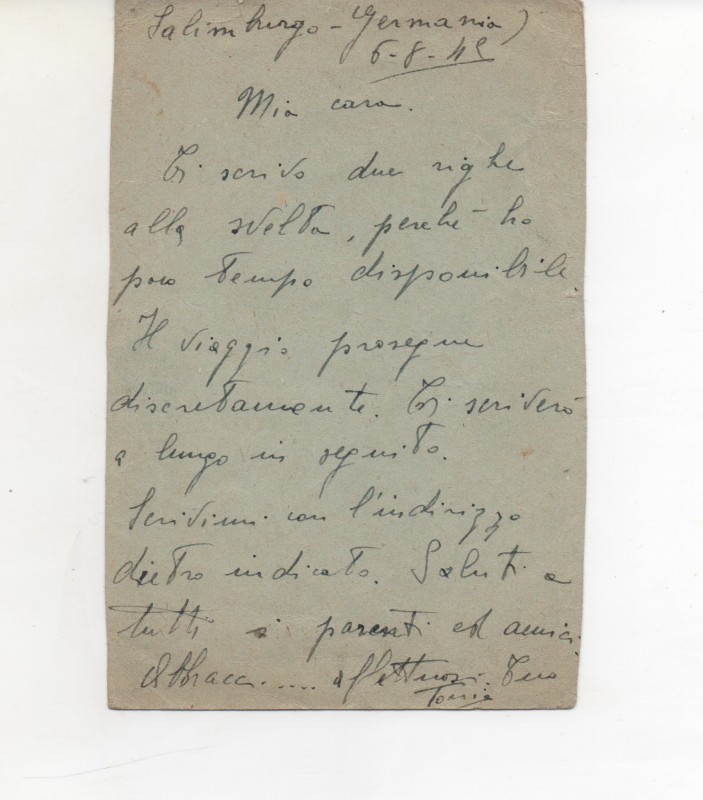 Salimburgo - Germania)
6-8-42
Mia cara.
Ti scrivo due righe
alla svelta, perchè ho
poco tempo disponibile.
Il viaggio prosegue
discretamente. Ti scriverò
a lungo in seguito.
Scrivimi con l'indirizzo
dietro indicato. Saluti a
tutti i parenti ed amici.
Abbracci..... affettuosi. Tuo